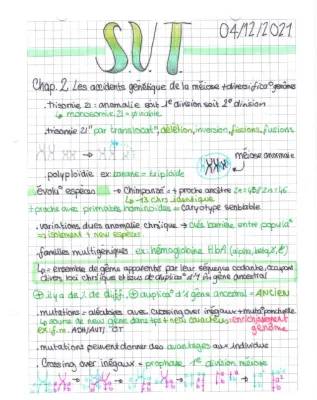 04/12/2021
S.V.T
Chap. 2 Les accidents génétique de la méiose + diversifica° génomes
. trisomie 21 : anomalie soit 1e division soit 2e division
↳ monosomie 21 = invivable
. trisomie 21 "par translocat°, délétion, inversion, fissions, fusions
méiose anormale
. polyploïdie ex: banane = triploïde
évolu° espèces → Chimpanzé = + proche ancêtre 2n=48/2n=46
↳ 13 chrs identique
+ proche avec primates hominoïdes = Caryotype semblable
. variations dues anomalie chrsique → Clés barrière entre popula°
= isolement + new espèces
. familles multigéniques ex: hémoglobine HbA (alpha, beta,
↳ = ensemble de gènes apparentés par leur séquence codante, occupant
divers loci chrsique et issus de duplica° d'1 gène ancestral
⊕ il y a de diff, ⊕ duplica° d'1 gène ancestral = ANCIEN
. mutations = aléatoires avec Crossing over inégaux + muta° ponctuelle
↳ source de new gènes dans tps + new caractères: enrichissement
ex: f.m. ADH/AVT/OT génome
. mutations peuvent donner des avantages aux individus
. Crossing over inégaux + prophase 1e division méiose